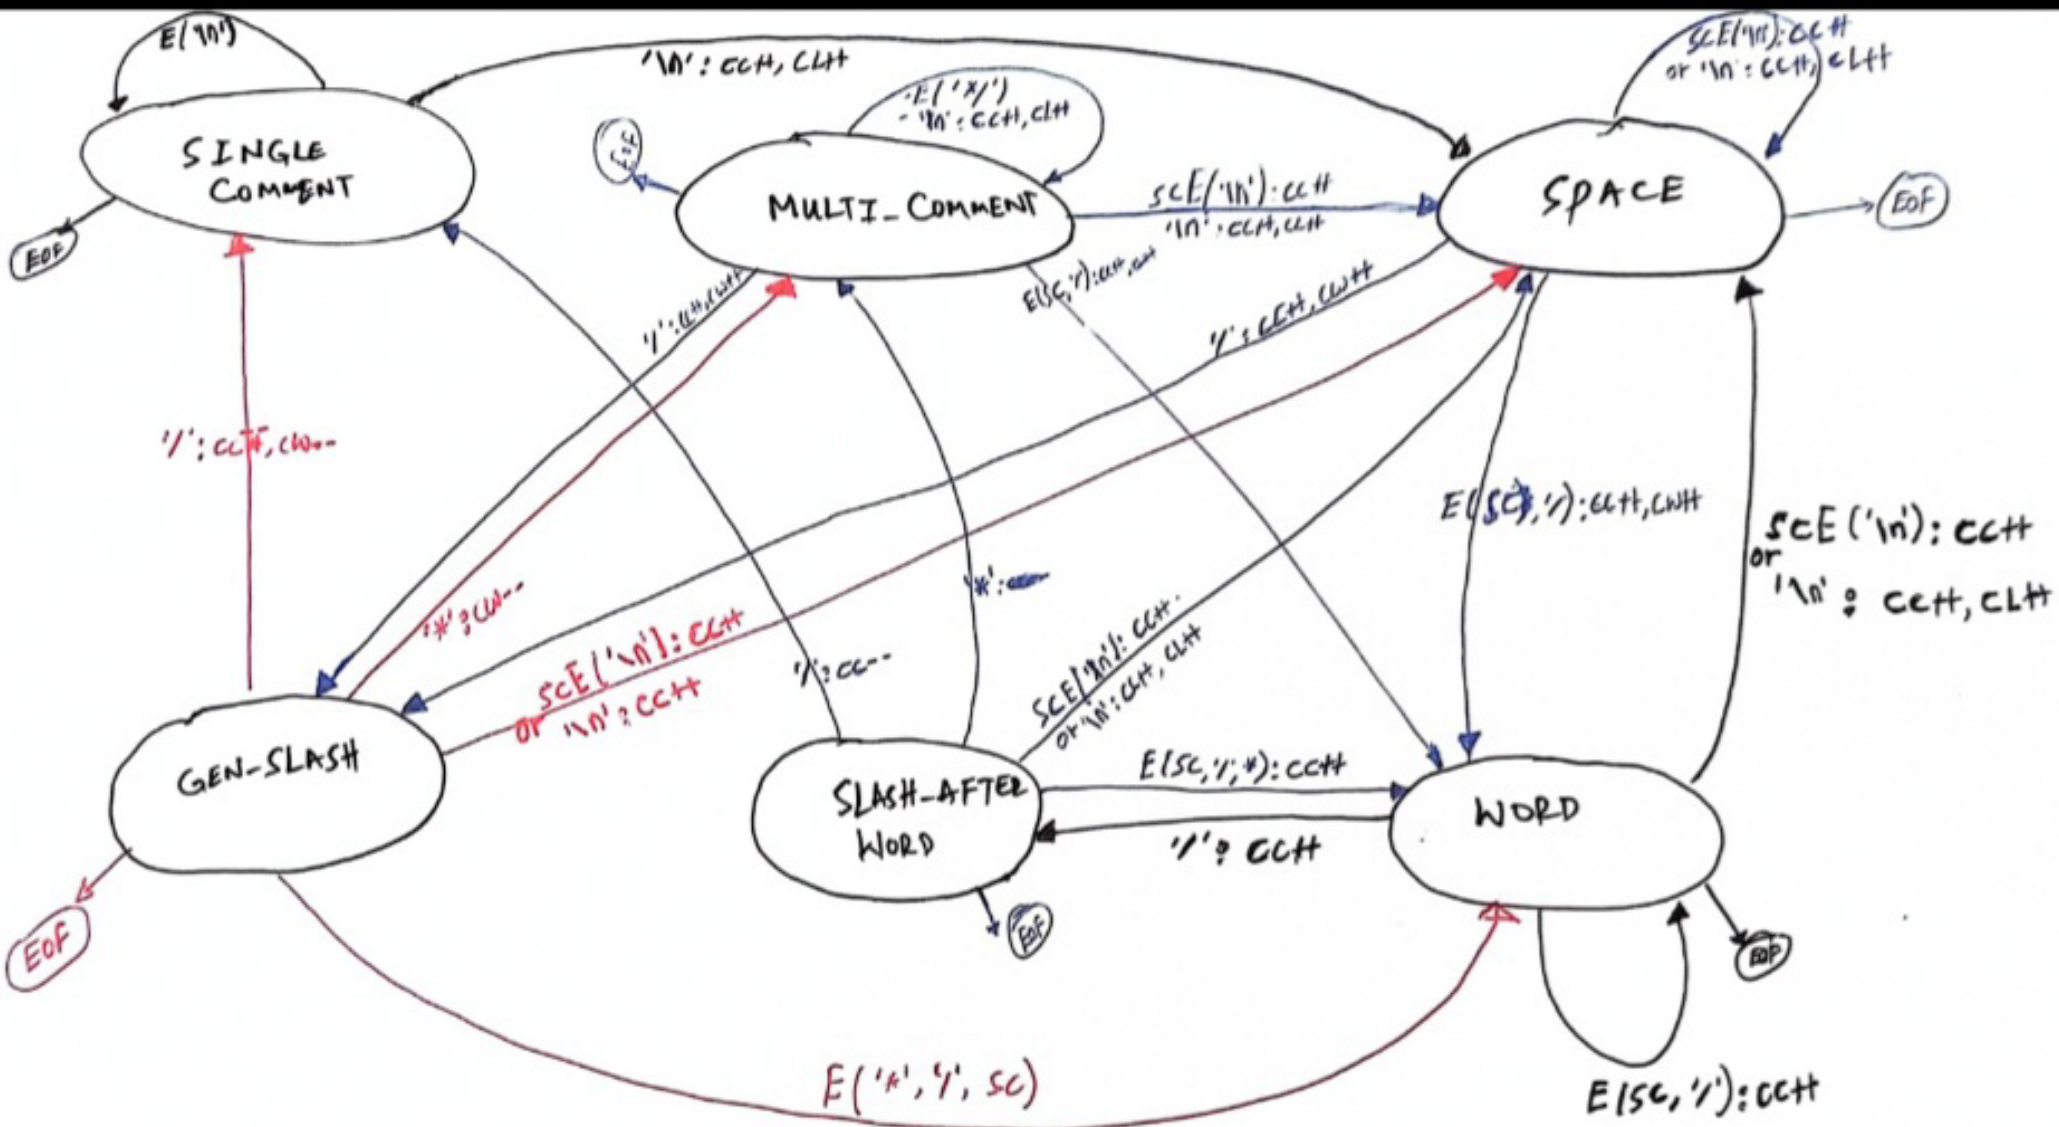 E('\n')
'\n': CC++, CL++
SCE('\n'): CC++
or '\n': CC++, CL++
-E('*/')
- '\n': CC++, CL++
SINGLE
COMMENT
EOF
EOF
MULTI_COMMENT
SCE('\n'): CC++
'\n': CC++, CL++
SPACE
EOF
'/': CC++, CW++
E(SC, '/'): CC++,
'/': CC++, CW++
'/': CC++, CW--
E(SC, '/): CC++, CW++
SCE('\n'): CC++
or
'\n': CC++, CL++
'*': CW--
'*':
SCE('\n'): CC++
or '\n': CC++
'/': CC--
SCE('\n'): CC++
or '\n': CC++, CL++
GEN-SLASH
E(SC, '/, *): CC++
SLASH-AFTER
WORD
'/': CC++
WORD
EOF
EOF
EOF
E('*', '/', SC)
E(SC, '/'): CC++